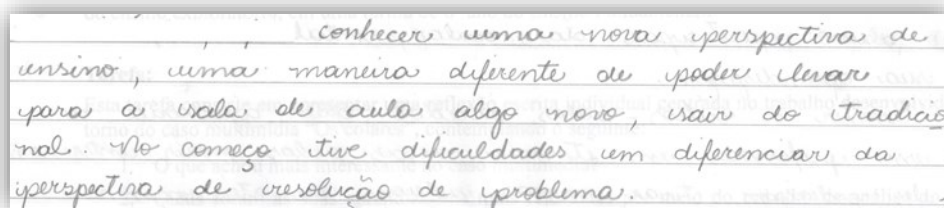 , , conhecer uma nova perspectiva de
ensino, uma maneira diferente de poder levar
para a sala de aula algo novo, sair do tradicio
nal. No começo tive dificuldades em diferenciar da
perspectiva de resolução de problema.